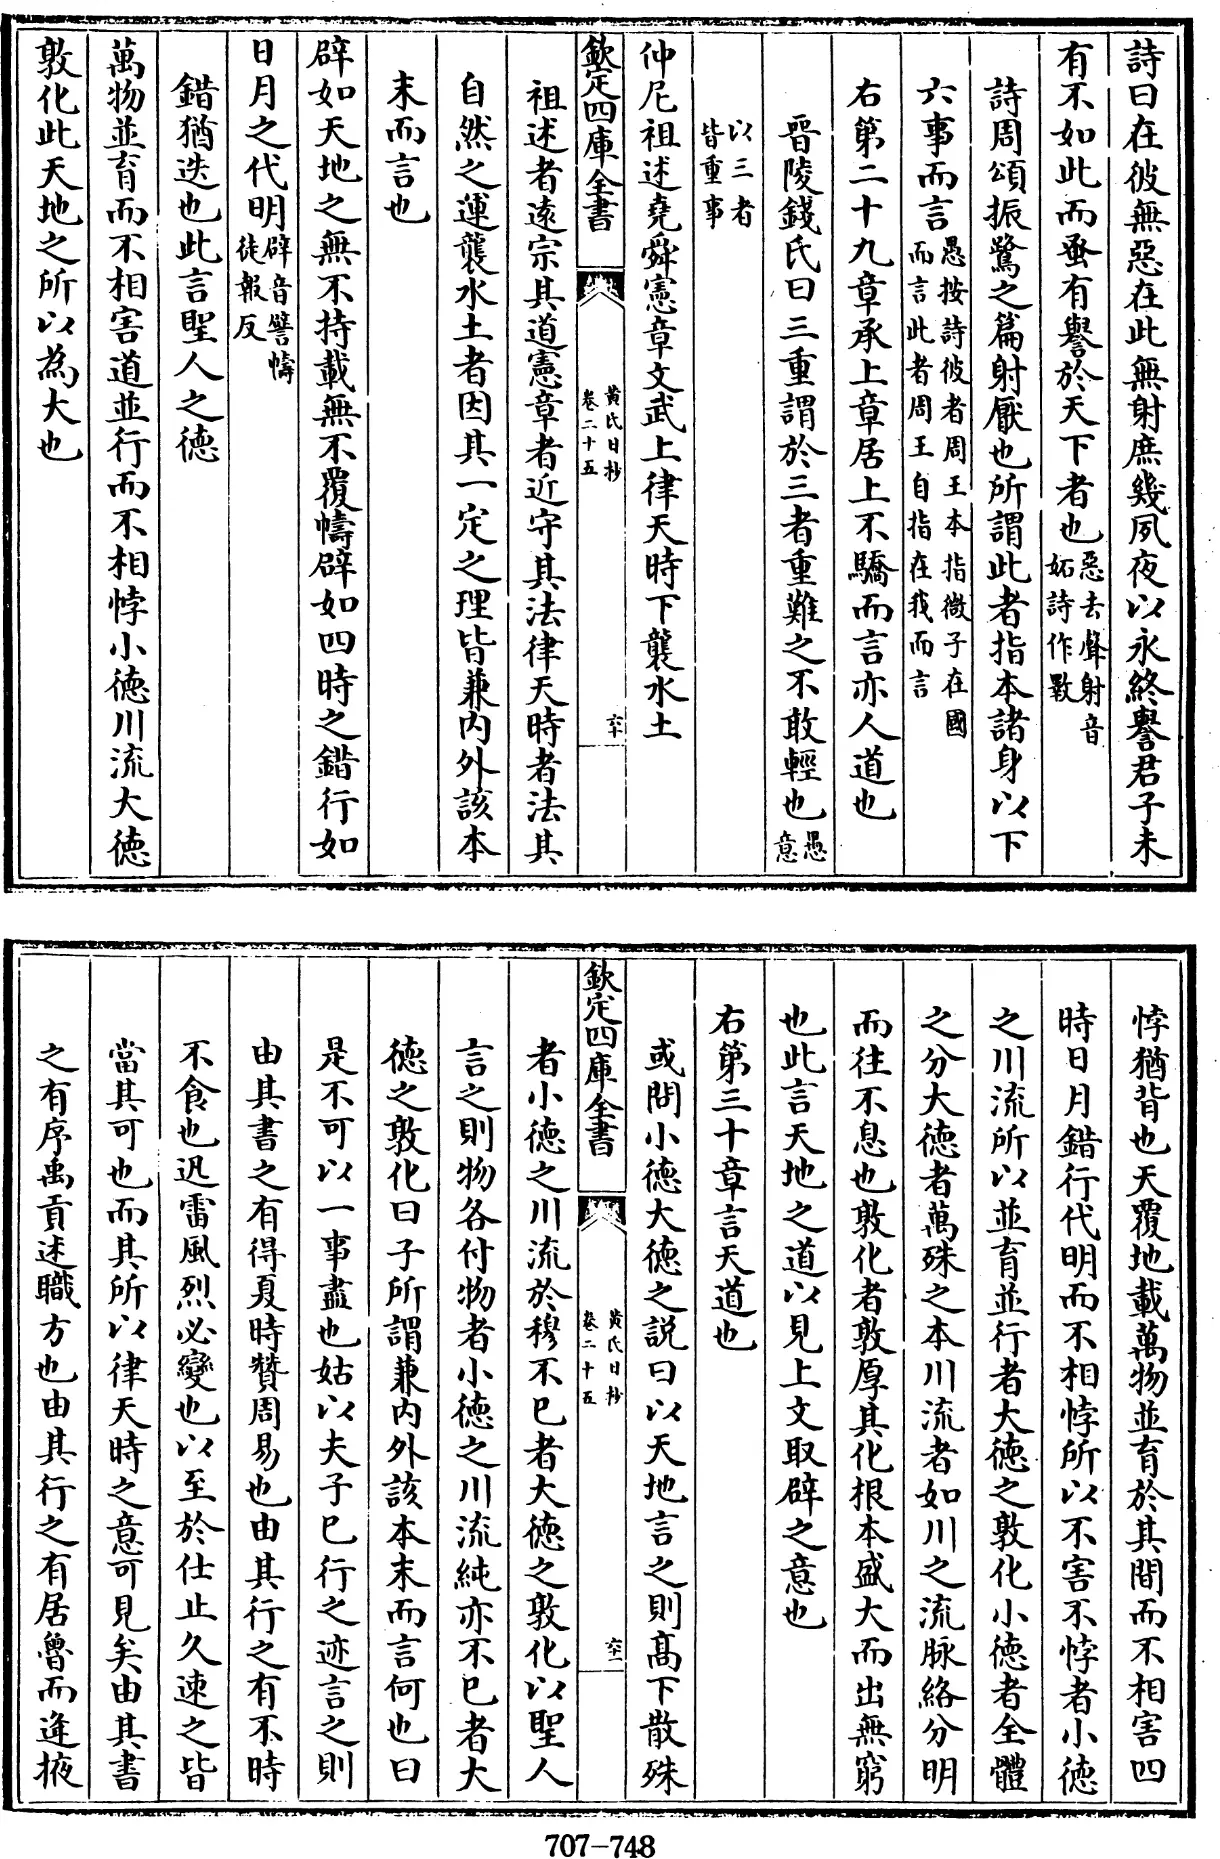 詩曰在彼無惡在此無射庶幾夙夜以永終譽君子未
有不如此而蚤有譽於天下者也惡去聲射音妬詩作斁
詩周頌振鷺之篇射厭也所謂此者指本諸身以下
六事而言愚按詩彼者周王本指微子在國而言此者周王自指在我而言
右第二十九章承上章居上不驕而言亦人道也
晉陵錢氏曰三重謂於三者重難之不敢輕也愚意
以三者皆重事
仲尼祖述堯舜憲章文武上律天時下襲水土
欽定四庫全書 黃氏日抄卷二十五 六十
祖述者遠宗其道憲章者近守其法律天時者法其
自然之運襲水土者因其一定之理皆兼內外該本
末而言也
辟如天地之無不持載無不覆幬辟如四時之錯行如
日月之代明辟音譬幬徒報反
錯猶迭也此言聖人之德
萬物並育而不相害道並行而不相悖小德川流大德
敦化此天地之所以為大也
悖猶背也天覆地載萬物並育於其間而不相害四
時日月錯行代明而不相悖所以不害不悖者小德
之川流所以並育並行者大德之敦化小德者全體
之分大德者萬殊之本川流者如川之流脉絡分明
而往不息也敦化者敦厚其化根本盛大而出無窮
也此言天地之道以見上文取辟之意也
右第三十章言天道也
或問小德大德之説曰以天地言之則髙下散殊
欽定四庫全書 黃氏日抄卷二十五 六十一
者小德之川流於穆不已者大德之敦化以聖人
言之則物各付物者小德之川流純亦不已者大
德之敦化曰子所謂兼內外該本末而言何也曰
是不可以一事盡也姑以夫子已行之迹言之則
由其書之有得夏時贊周易也由其行之有不時
不食也迅雷風烈必變也以至於仕止久速之皆
當其可也而其所以律天時之意可見矣由其書
之有序禹貢述職方也由其行之有居魯而逢掖
707-748